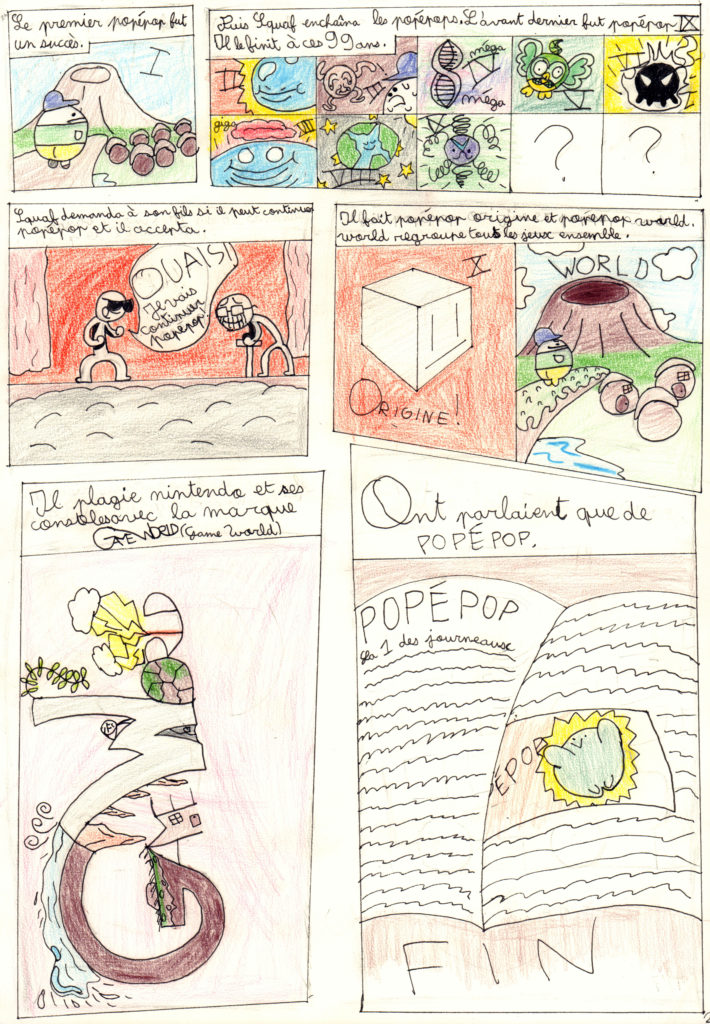 Le premier popépop fut
un succès.
I
Luis Lquaf enchaîna les popépops. L'avant dernier fut popépop IX
Il le finit à ces 99 ans.
II
III
mega
V
mega
V
VI
giga
VII
?
?
Lquaf demanda à son fils si il peut continuer
popépop et il accepta.
OUAIS!
Je vais
continuer
popépop!
Il fait popépop origine et popépop world.
world regroupe tous les jeux ensemble.
X
ORIGINE!
WORLD
Il plagie nintendo et ses
consoles avec la marque
GAME WORLD (Game World)
Ont parlaient que de
POPÉPOP.
POPÉPOP
la 1 des journeaux
ÉPOP
FIN